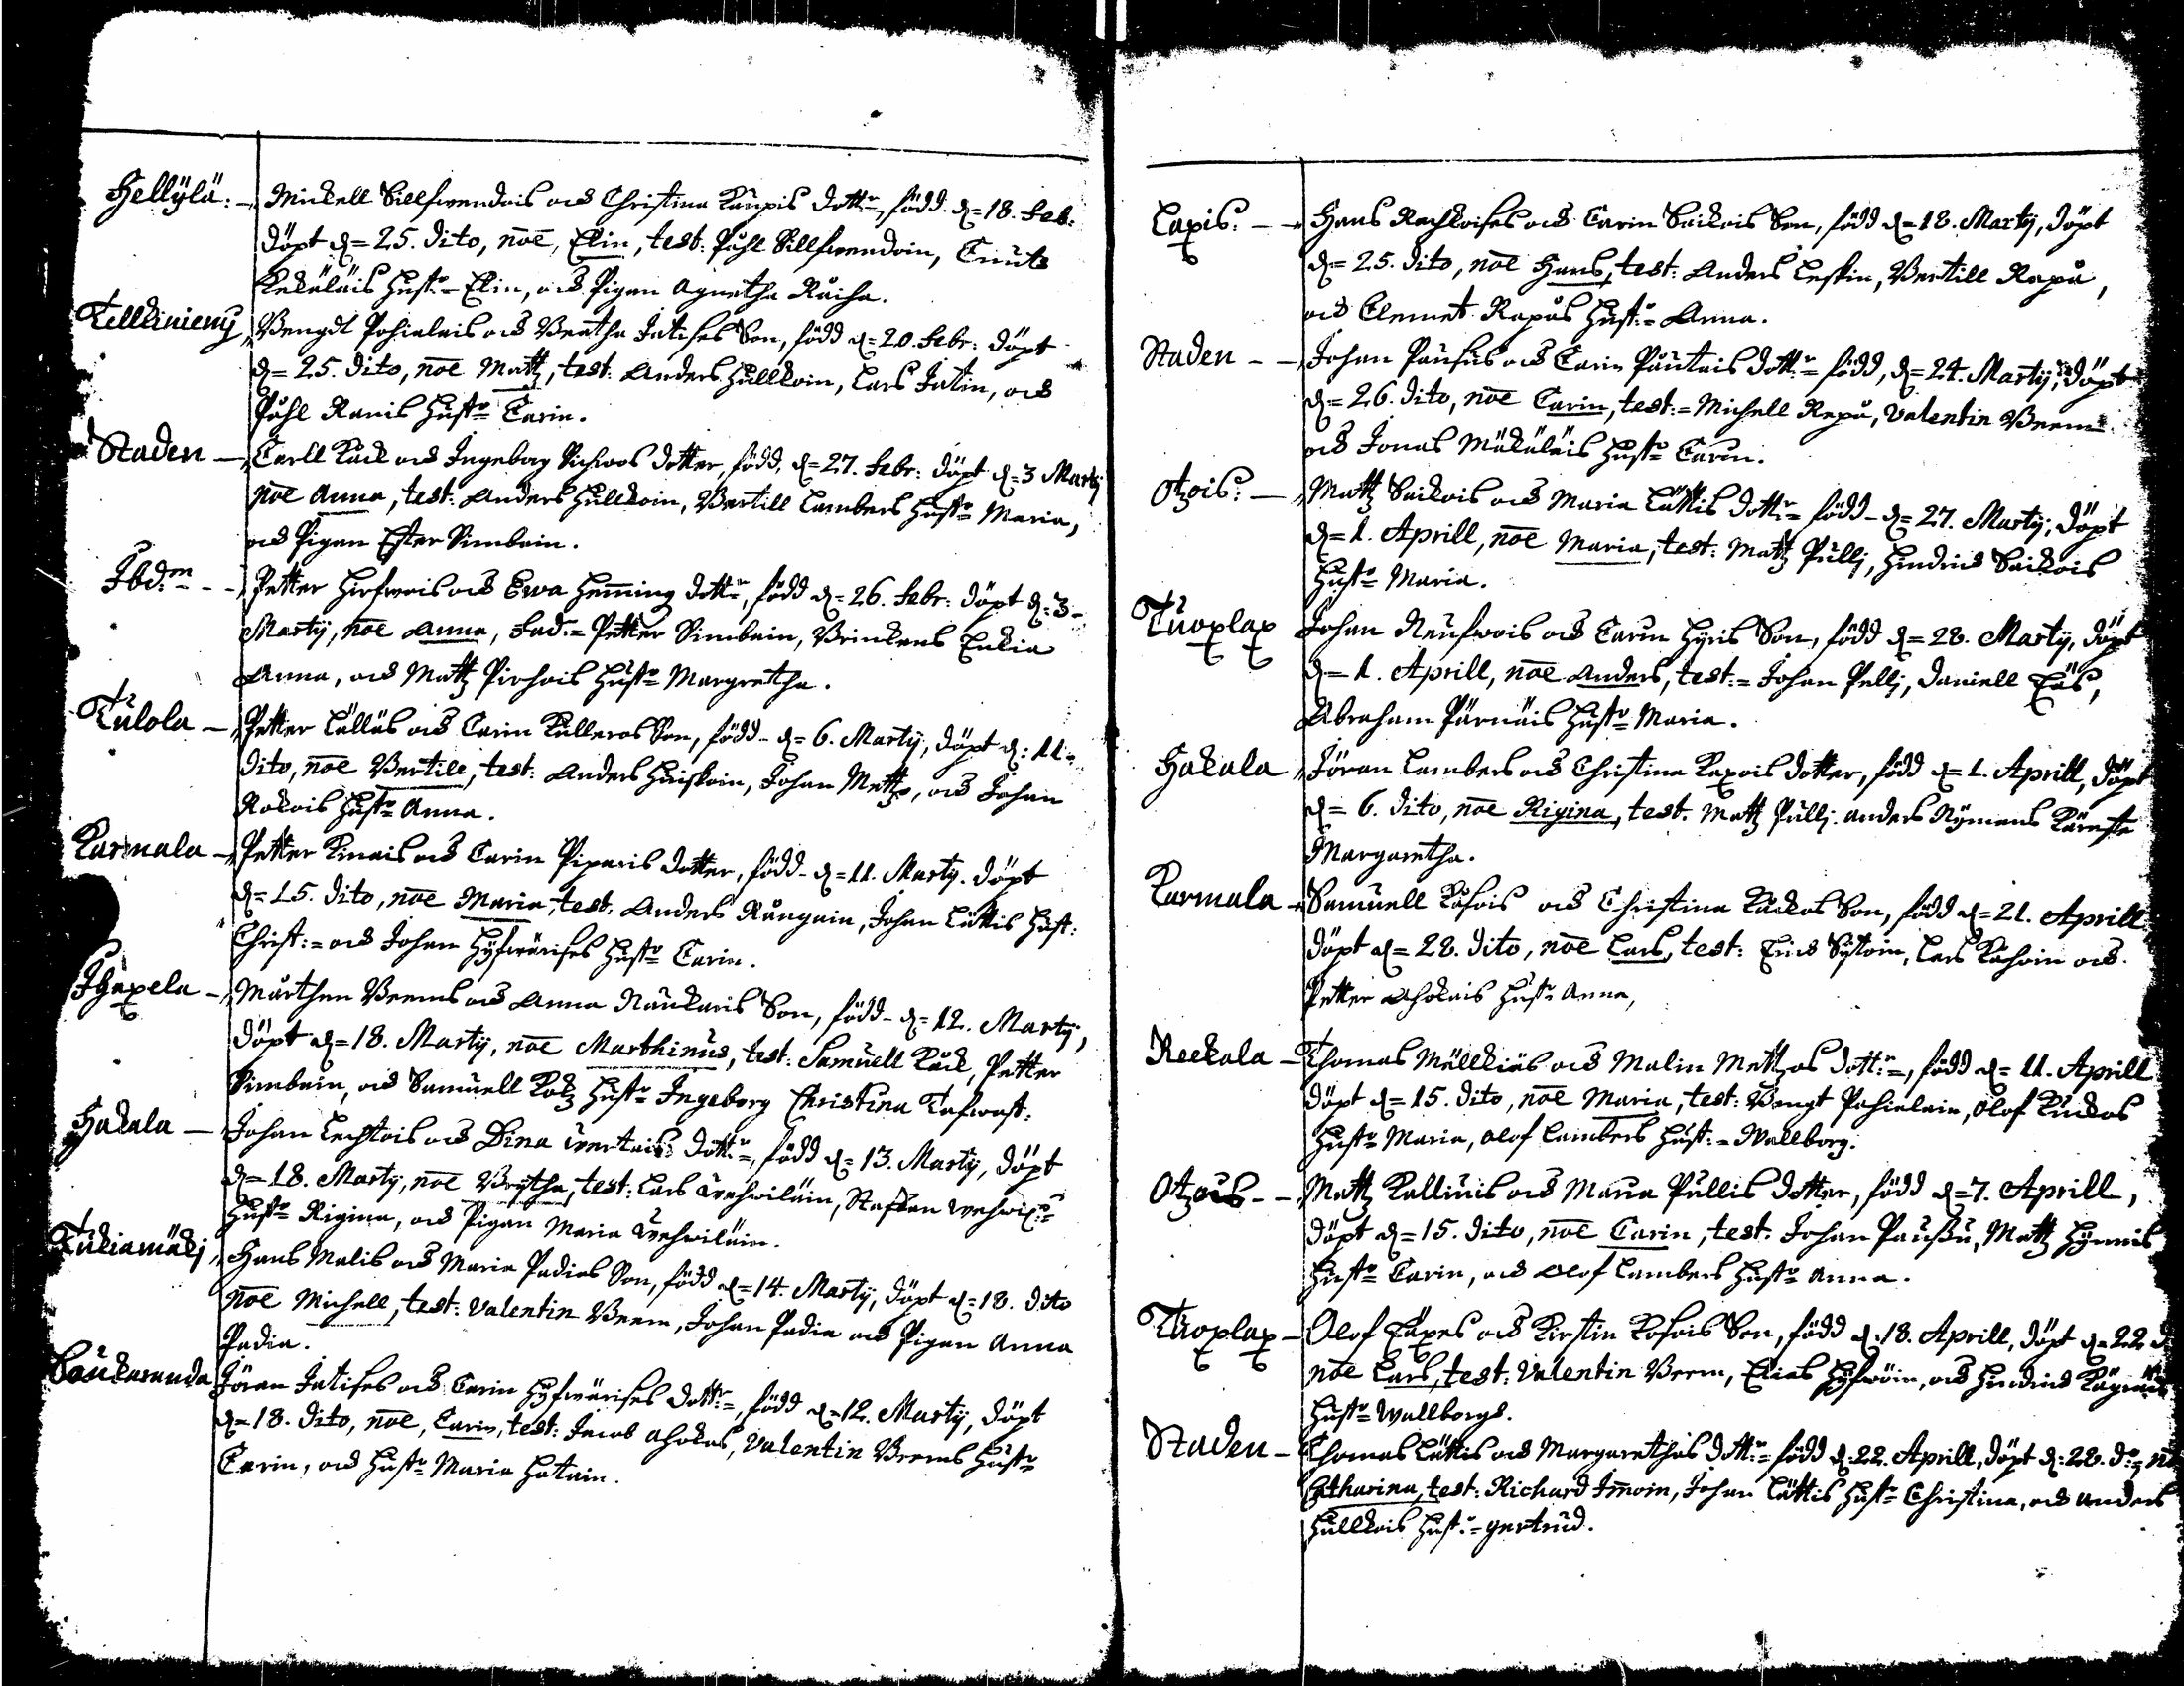 Hellÿlä: Mickell Sillfwendois och Christina Kaupis dottr, född d=18. Feb:
döpt d=25. dito, noe, Elin, test: Påhl Sillfwendoin, Cnuts
Kekäläis Hustr= Elin, och Pigan Agnetha Raiha.
Tellkinieny, Bengdt Pohialais och Beatha Intises Son, född d=20. Febr: döpt
d=25. dito, noe Matz, test: Anders Hullkoin, Lars Intin, och
Påhl Ranis Hustr= Carin.
Staden — Carll Käck och Ingeborg Sichwos dotter, född, d=27. Febr: döpt d=3 Martÿ
noe Anna, test: Anders Hullkoin, Bertill Lambers Hustr= Maria,
och Pigan Ester Simbain.
Ibd:m= - - Petter Hirfwois och Ewa Hem̄ing dottr=, född d=26. Febr: döpt d:3-
Martÿ, noe Anna, Fad:= Petter Simbain, Brinckens Enkia
Anna, och Matz Pirhois Hustr= Margretha.
Tulola — Petter Lälläs och Carin Kulleros Son, född- d= 6. Martÿ, döpt d: 11-
dito, noe Bertill, test: Anders Huiskoin, Johan Mettz, och Johan
Rokois Hustr= Anna.
Karmala — Petter Kinais och Carin Piparis dotter, född- d=11. Martÿ. döpt
d=15. dito, noe Maria, test: Anders Rångain, Johan Lättis Hust:
Christ:= och Johan Hÿfwärises Hustr= Carin.
Ihaxela — Mårthen Veems och Anna Naukaris Son, född- d=12. Martÿ,
döpt d=18. Martÿ, noe Marthinus, test: Samuell Käck, Petter
Simbain, och Samuell Kotz Hustr= Ingeborg Christina Tafwast:
Hakala — Johan Lechtois och Dina wertais dottr=, född d= 13. Martÿ, döpt
d=18. Martÿ, noe Brÿtha, test: Lars wehwiläin, Staffan wehwil:r=
Hustr= Rigina, och Pigan Maria wehwiläin.
Tukiamäki, Hans Malis och Maria Padias Son, född d=14. Martÿ, döpt d=18. dito
noe Michell, test: Valentin Veem, Johan Padia och Pigan Anna
Padia.
Laukaranda Jöran Intises och Carin Hÿfwärises dottr=, född d=12. Martÿ, döpt
d=18. dito, noe, Carin, test: Jacob Ahokas, Valentin Veems Hustr=
Carin, och Hustr= Maria Hatain.
Laxis: — Hans Rachkoises och Carin Saikois Son, född d=18. Martÿ, döpt
d=25. dito, noe Hans, test: Anders Leskin, Bertill Rapu,
och Clemet Rapus Hustr= Anna.
Staden - - Johan Pausus och Carin Pautais dottr= född, d=24. Martÿ, döpt
d=26. dito, noe Carin, test:= Michell Repu, Valentin Veem
och Jonas Mäkäläis Hustr= Carin.
Otzois: — Matz Saikois och Maria Lättis dottr= född- d= 27. Martÿ, döpt
d=1. Aprill, noe Maria, test: Matz Pulli, Hindrich Saikois
Hustr= Maria.
Tuoxlax Johan Neufwois och Carin Hÿris Son, född d=28. Martÿ, döpt
d=1. Aprill, noe Anders, test:= Johan Pelli, Daniell Eäs,
Abraham Pärnäis Hustr= Maria.
Hakala Jöran Lambers och Christina Kaxois dotter, född d=1. Aprill, döpt
d= 6. dito, noe Rigina, test. Matz Pulli. Anders Nÿmans Käreste
Margaretha.
Karmala — Samuell Kåsois och Christina Käckos Son, född d=21. Aprill
döpt d=28. dito, noe Lars, test: Erich Sÿtoin, Lars Kahoin och
Petter Ahokais Hustr= Anna,
Reekala — Thomas Mällkiäs och Malin Mettzos dottr:=, född d= 11. Aprill
döpt d=15. dito, noe Maria, test: Bengt Pohialain, Olof Kuckos
Hustr= Maria, Olof Lambers Hust:= Wallborg.
Otzois - - Matz Kallinis och Maria Pullis dotter, född d=7. Aprill,
döpt d=15. dito, noe Carin, test. Johan Paussu, Matz Hÿnnis
Hustr= Carin, och Olof Lambers Hustr= Anna.
Tuoxlax — Olof Eäxes och Kirstin Kosois Son, född d:18. Aprill, döpt d=22 d
noe Lars, test: Valentin Veem, Elias Hÿfwöin, och Hindrich
Hustr= Wallborgs.
Staden — Thomas Lättis och Margarethas dottr:= född d:22. Aprill, döpt d:28. d:o=, no
Catharina, test: Richard Im̄oin, Johan Lättis Hustr= Christina, och Anders
Hullkois Hust:= gertrud.